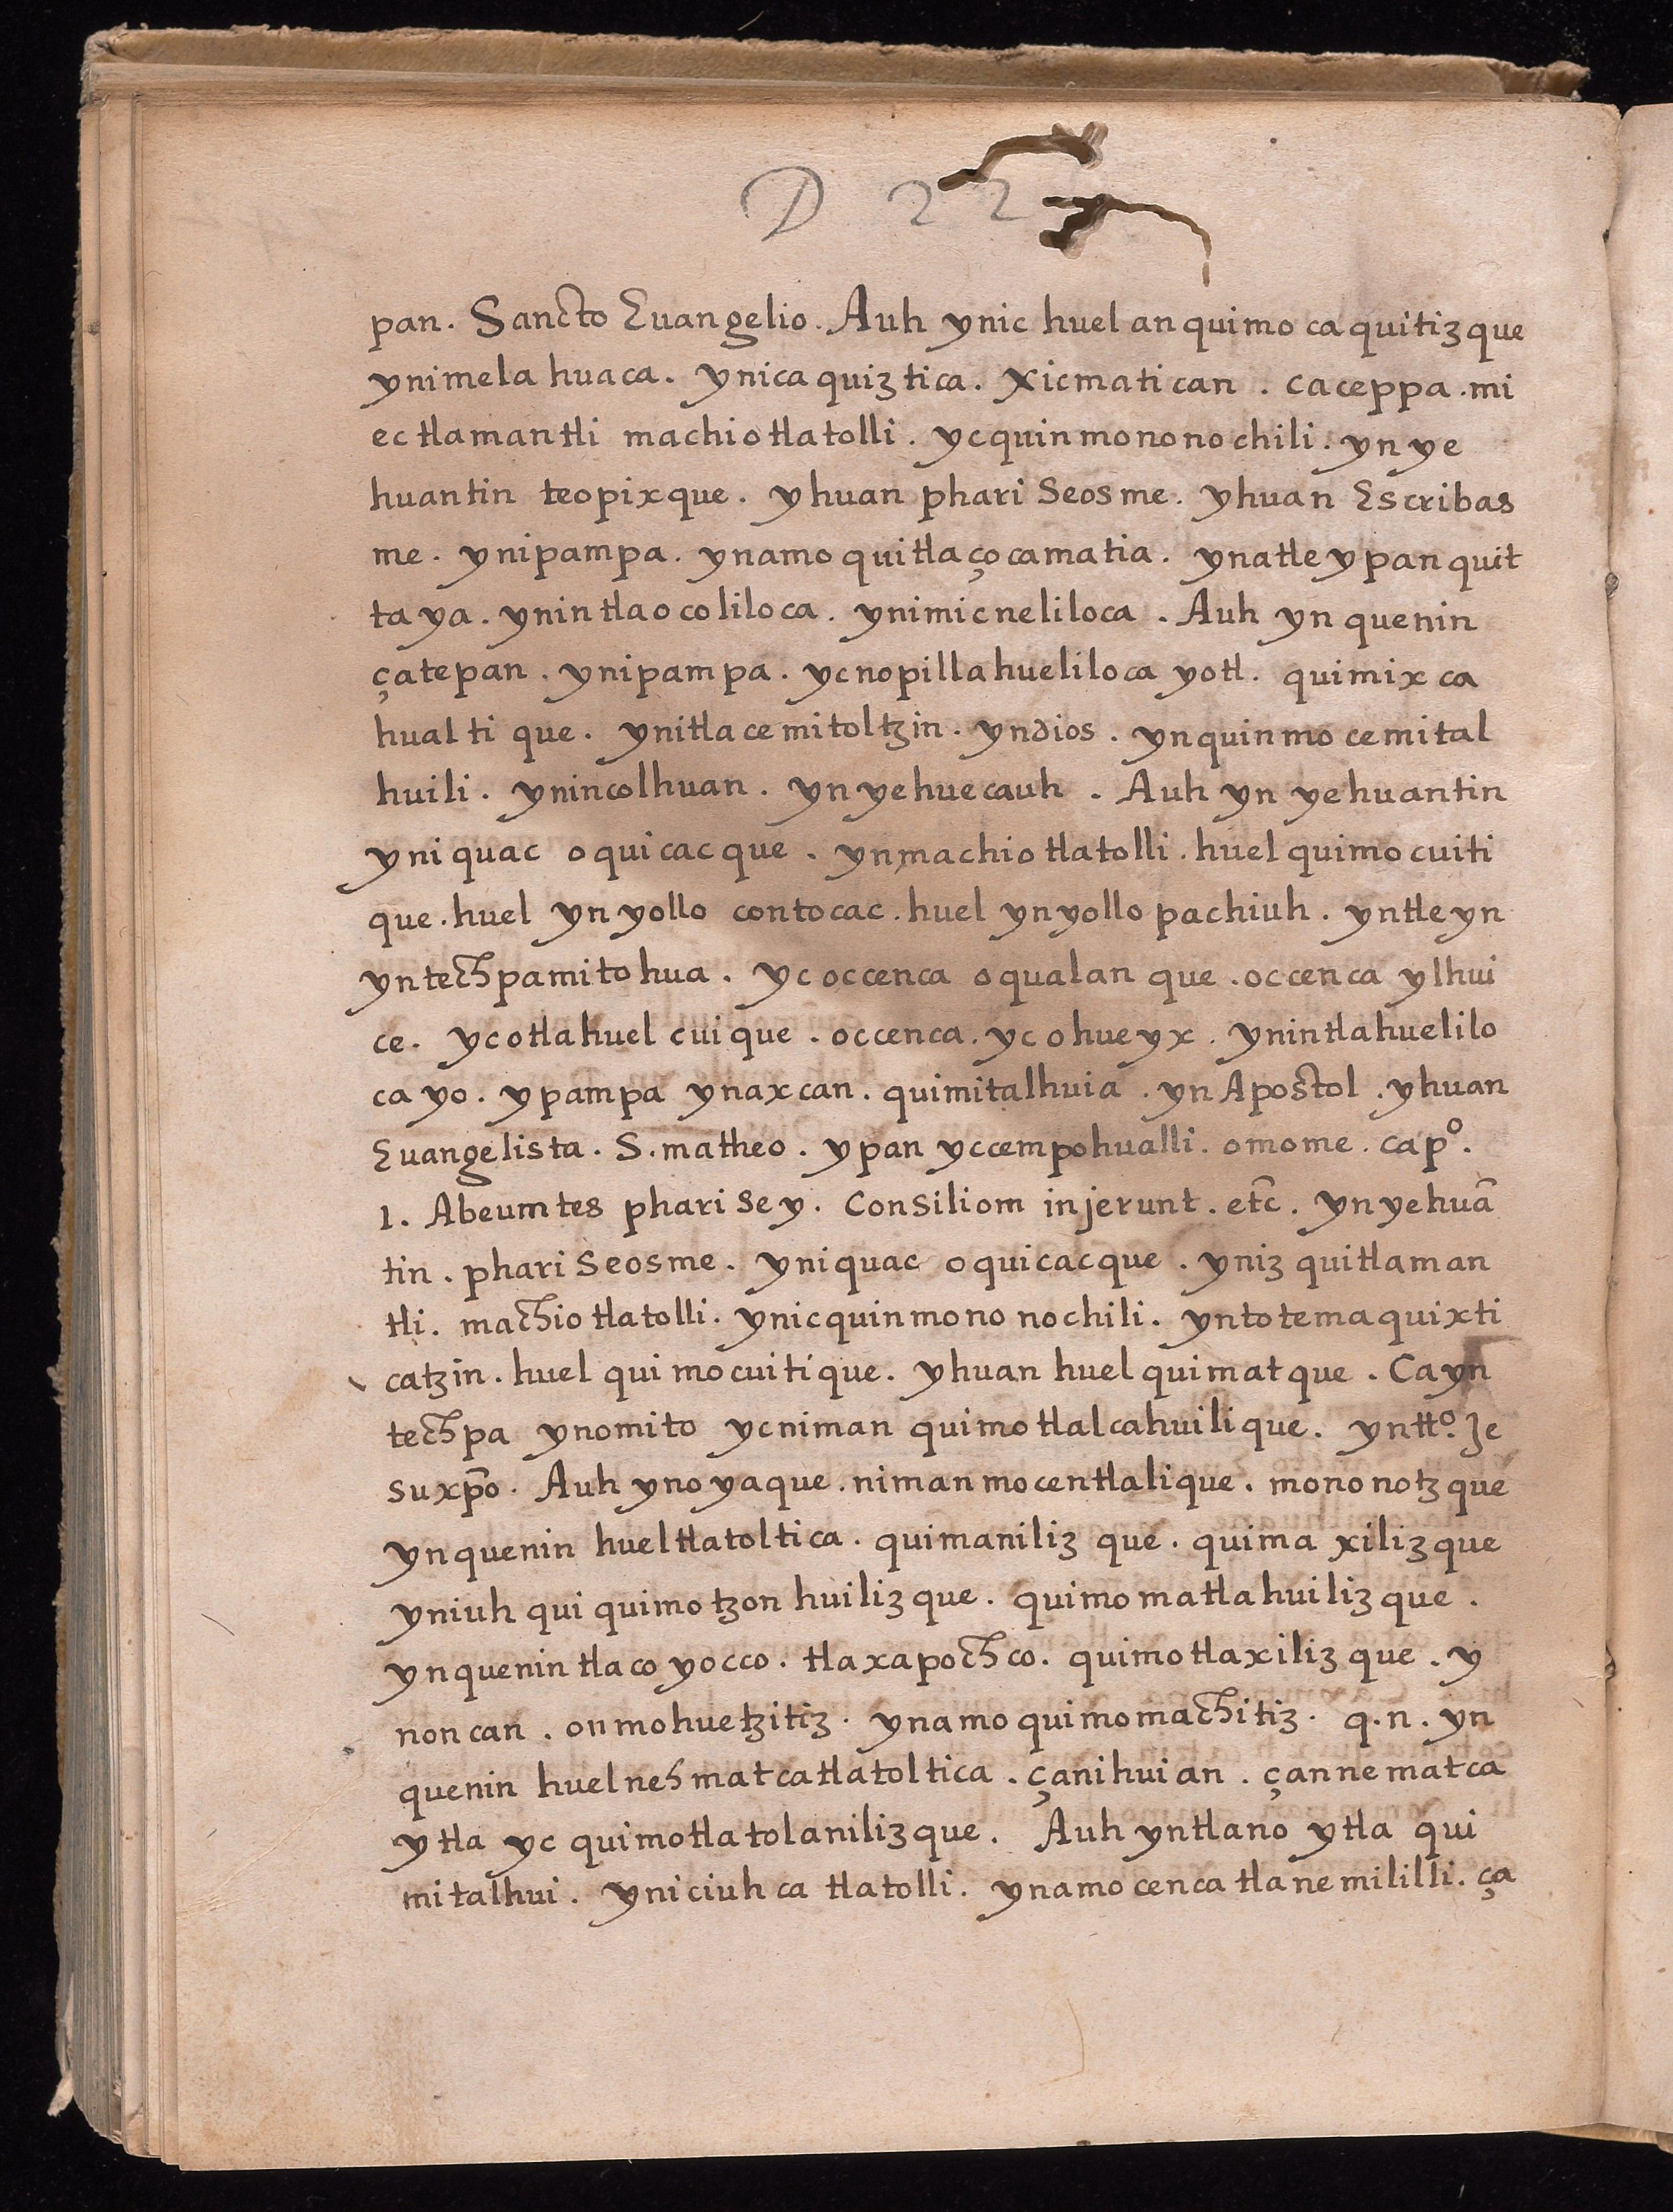 D 22
pan. Sancto Euangelio. Auh ynic huel anquimo caquitizque
ynimela huaca. ynicaquiztica. Xicmatican. caceppa. mi
ec tlamantli machiotlatolli. ycquinmononochili. yn ye
huantin teopixque. yhuan phariSeosme. yhuan Escribas
me. ynipampa. ynamo quitlaçocamatia. ynatle ypan quit
taya. ynintlaocoliloca. ynimicneliloca. Auh yn quenin
çatepan. ynipampa. ycnopillahueliloca yotl. quimixca
hualti que. ynitlacemitoltzin. yndios. ynquinmocemital
huili. ynincolhuan. yn yehuecauh. Auh yn yehuantin
yniquac oquicacque. ynmachiotlatolli. huel quimocuiti
que. huel ynyollo contocac. huel ynyollo pachiuh. yntleyn
yntechpamitohua. yc occenca oqualanque. occenca ylhui
ce. ycotlahuelcuique. occenca. yc ohueyx. ynintlahuelilo
cayo. ypampa ynaxcan. quimitalhuia. yn Apostol. yhuan
Euangelista. S. matheo. ypan yccempohualli. omome. capº.
1. Abeumtes pharisey. Consiliom injerunt. etc̄. yn yehuā
tin. phariSeosme. yniquac oquicacque. yniz quitlaman
tli. machiotlatolli. ynicquinmononochili. yntotemaquixti
catzin. huel quimocuitique. yhuan huel quimatque. Cayn
techpa ynomito ycniman quimotlalcahuilique. yntt.º Je
suxp̄o. Auh ynoyaque. niman mocentlalique. mononotzque
ynquenin hueltlatoltica. quimaniliz que. quimaxilizque
yniuh qui quimotzonhuilizque. quimomatlahuilizque.
ynquenin tlaco yocco. tlaxapochco. quimotlaxilizque. y
noncan. onmohuetzitiz. ynamo quimomachitiz. q.n. yn
quenin huel nehmatcatlatoltica. çanihuian. çannematca
ytla yc quimotlatolanilizque. Auh yntlano ytla qui
mitalhui. yniciuhca tlatolli. ynamo cenca tlanemililli. ça